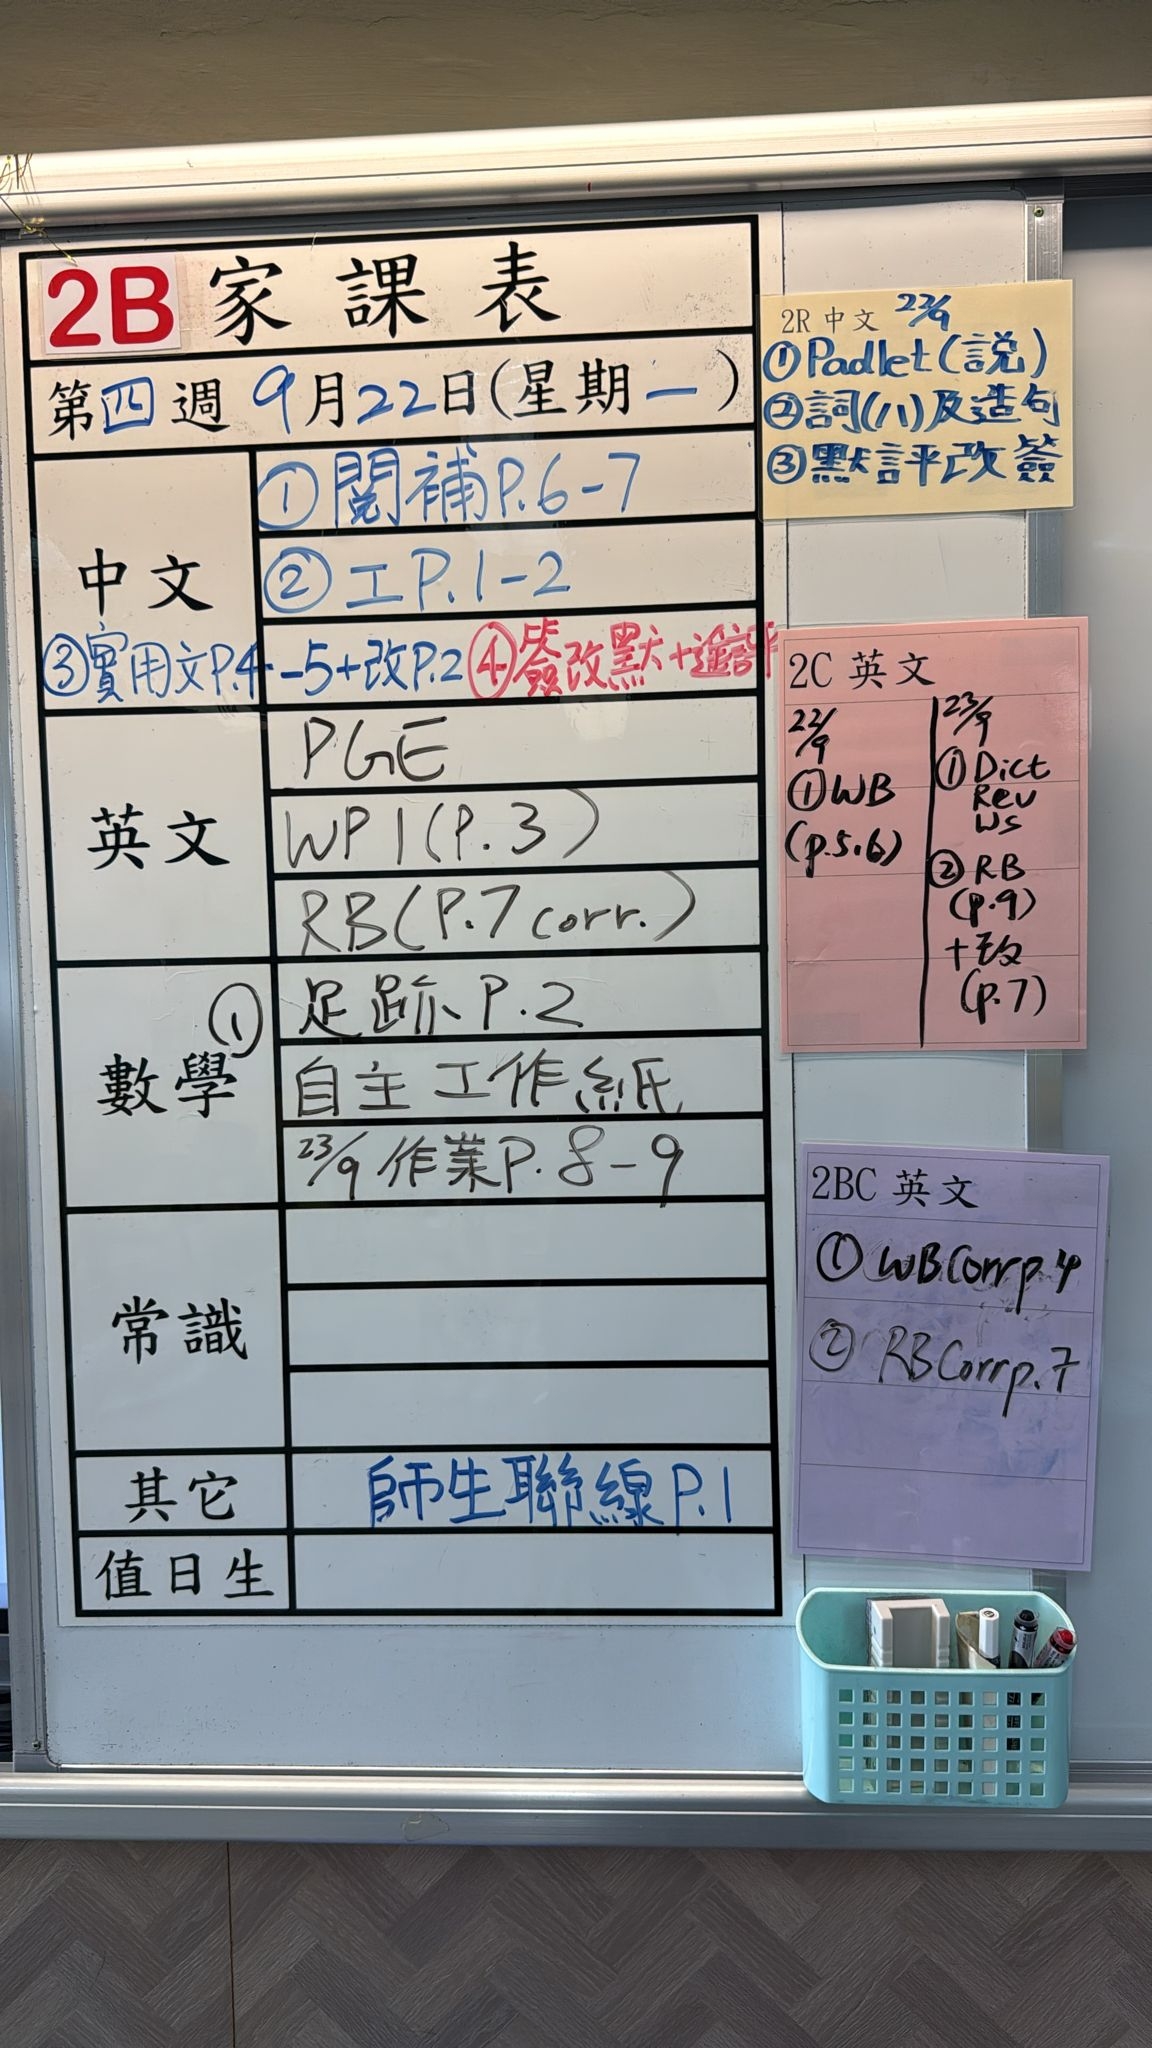 2B 家課表
第四週 9月22日(星期一)
中文
①閱補P.6-7
②工P.1-2
③實用文P.4-5+改P.2 ④簽改默+進評
英文
PGE
WP1(P.3)
RB(P.7 corr.)
數學
① 足跡P.2
自主工作紙
23/9 作業P.8-9
常識
其它
師生聯線P.1
值日生
2R 中文 22/9
①Padlet(說)
②詞(八)及造句
③默評改簽
2C 英文
22/9
①WB
(p.5.6)
23/9
①Dict
Rev
Ws
②RB
(p.9)
+改
(p.7)
2BC 英文
①WB Corr p.4
②RB Corr p.7